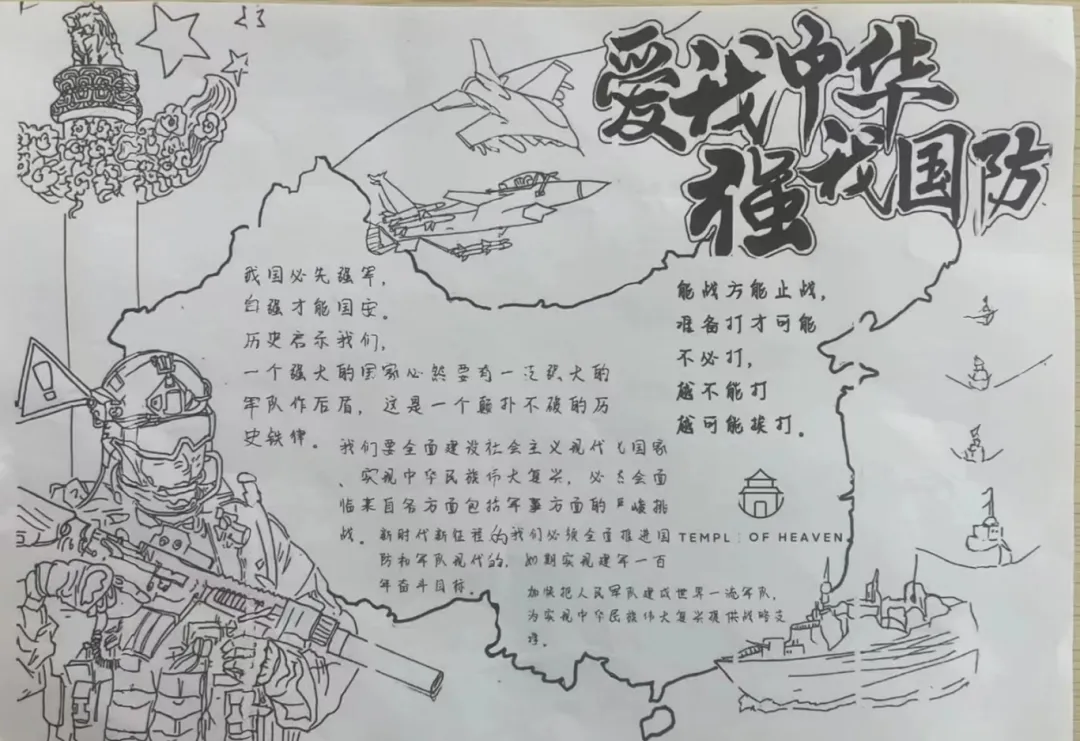 爱我中华
强我国防
我国必先强军，
自强才能国安。
历史启示我们，
一个强大的国家必然要有一支强大的
军队作后盾，这是一个颠扑不破的历
史铁律。
我们要全面建设社会主义现代国家
、实现中华民族伟大复兴，必会面
临来自各方面包括军事方面的严峻挑
战。新时代新征程的我们必须全面推进国
防和军队现代的，如期实现建军一百
年奋斗目标。
加快把人民军队建成世界一流军队，
为实现中华民族伟大复兴提供战略支
撑。
能战方能止战，
准备打才可能
不必打，
越不能打
越可能挨打。
TEMPL OF HEAVEN